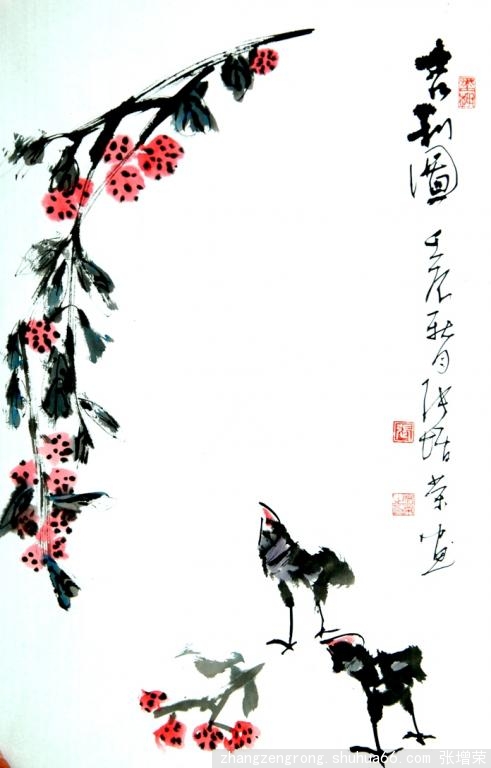 吉利圖
壬辰新月張增榮畫
zhangzengrong.shuhua66.com 张增荣